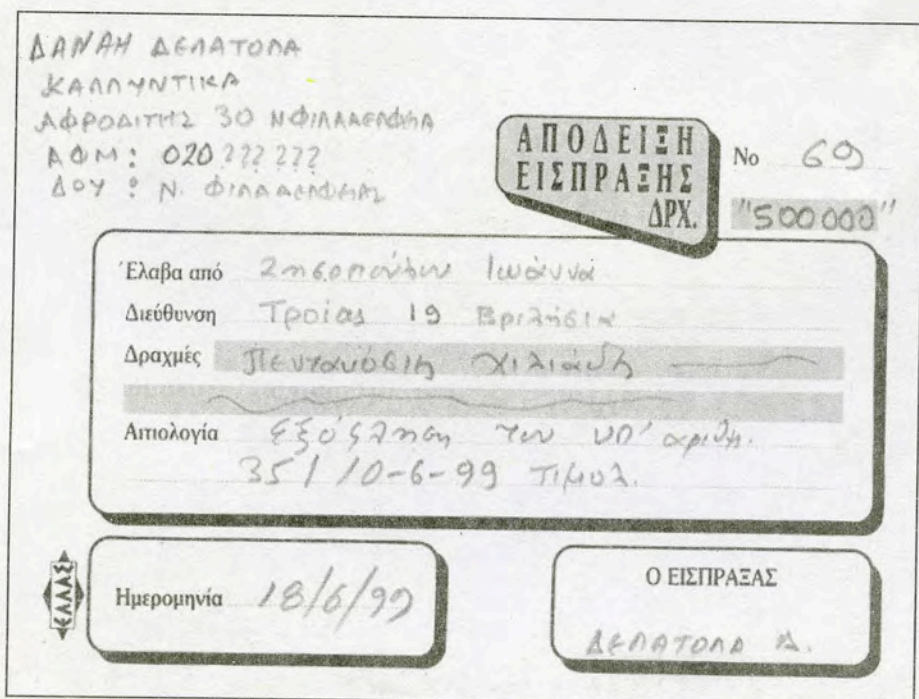 ΔΑΝΑΗ ΔΕΛΑΤΟΛΑ
ΚΑΛΛΥΝΤΙΚΑ
ΑΦΡΟΔΙΤΗΣ 30 Ν ΦΙΛΑΔΕΛΦΕΙΑ
ΑΦΜ: 020 ??? ???
ΔΟΥ : Ν. ΦΙΛΑΔΕΛΦΕΙΑΣ
ΑΠΟΔΕΙΞΗ
ΕΙΣΠΡΑΞΗΣ
ΔΡΧ.
No 69
"500000"
Έλαβα από Ιωάννα
Διεύθυνση Τροίας 19 Βριλήσια
Δραχμές Πεντακόσιες χιλιάδες
Αιτιολογία Εξόφληση του υπ' αριθμ.
35 / 10-6-99 Τιμολ.
ΕΛΛΑΣ
Ημερομηνία 18/6/99
Ο ΕΙΣΠΡΑΞΑΣ
ΔΕΛΑΤΟΛΑ Δ.